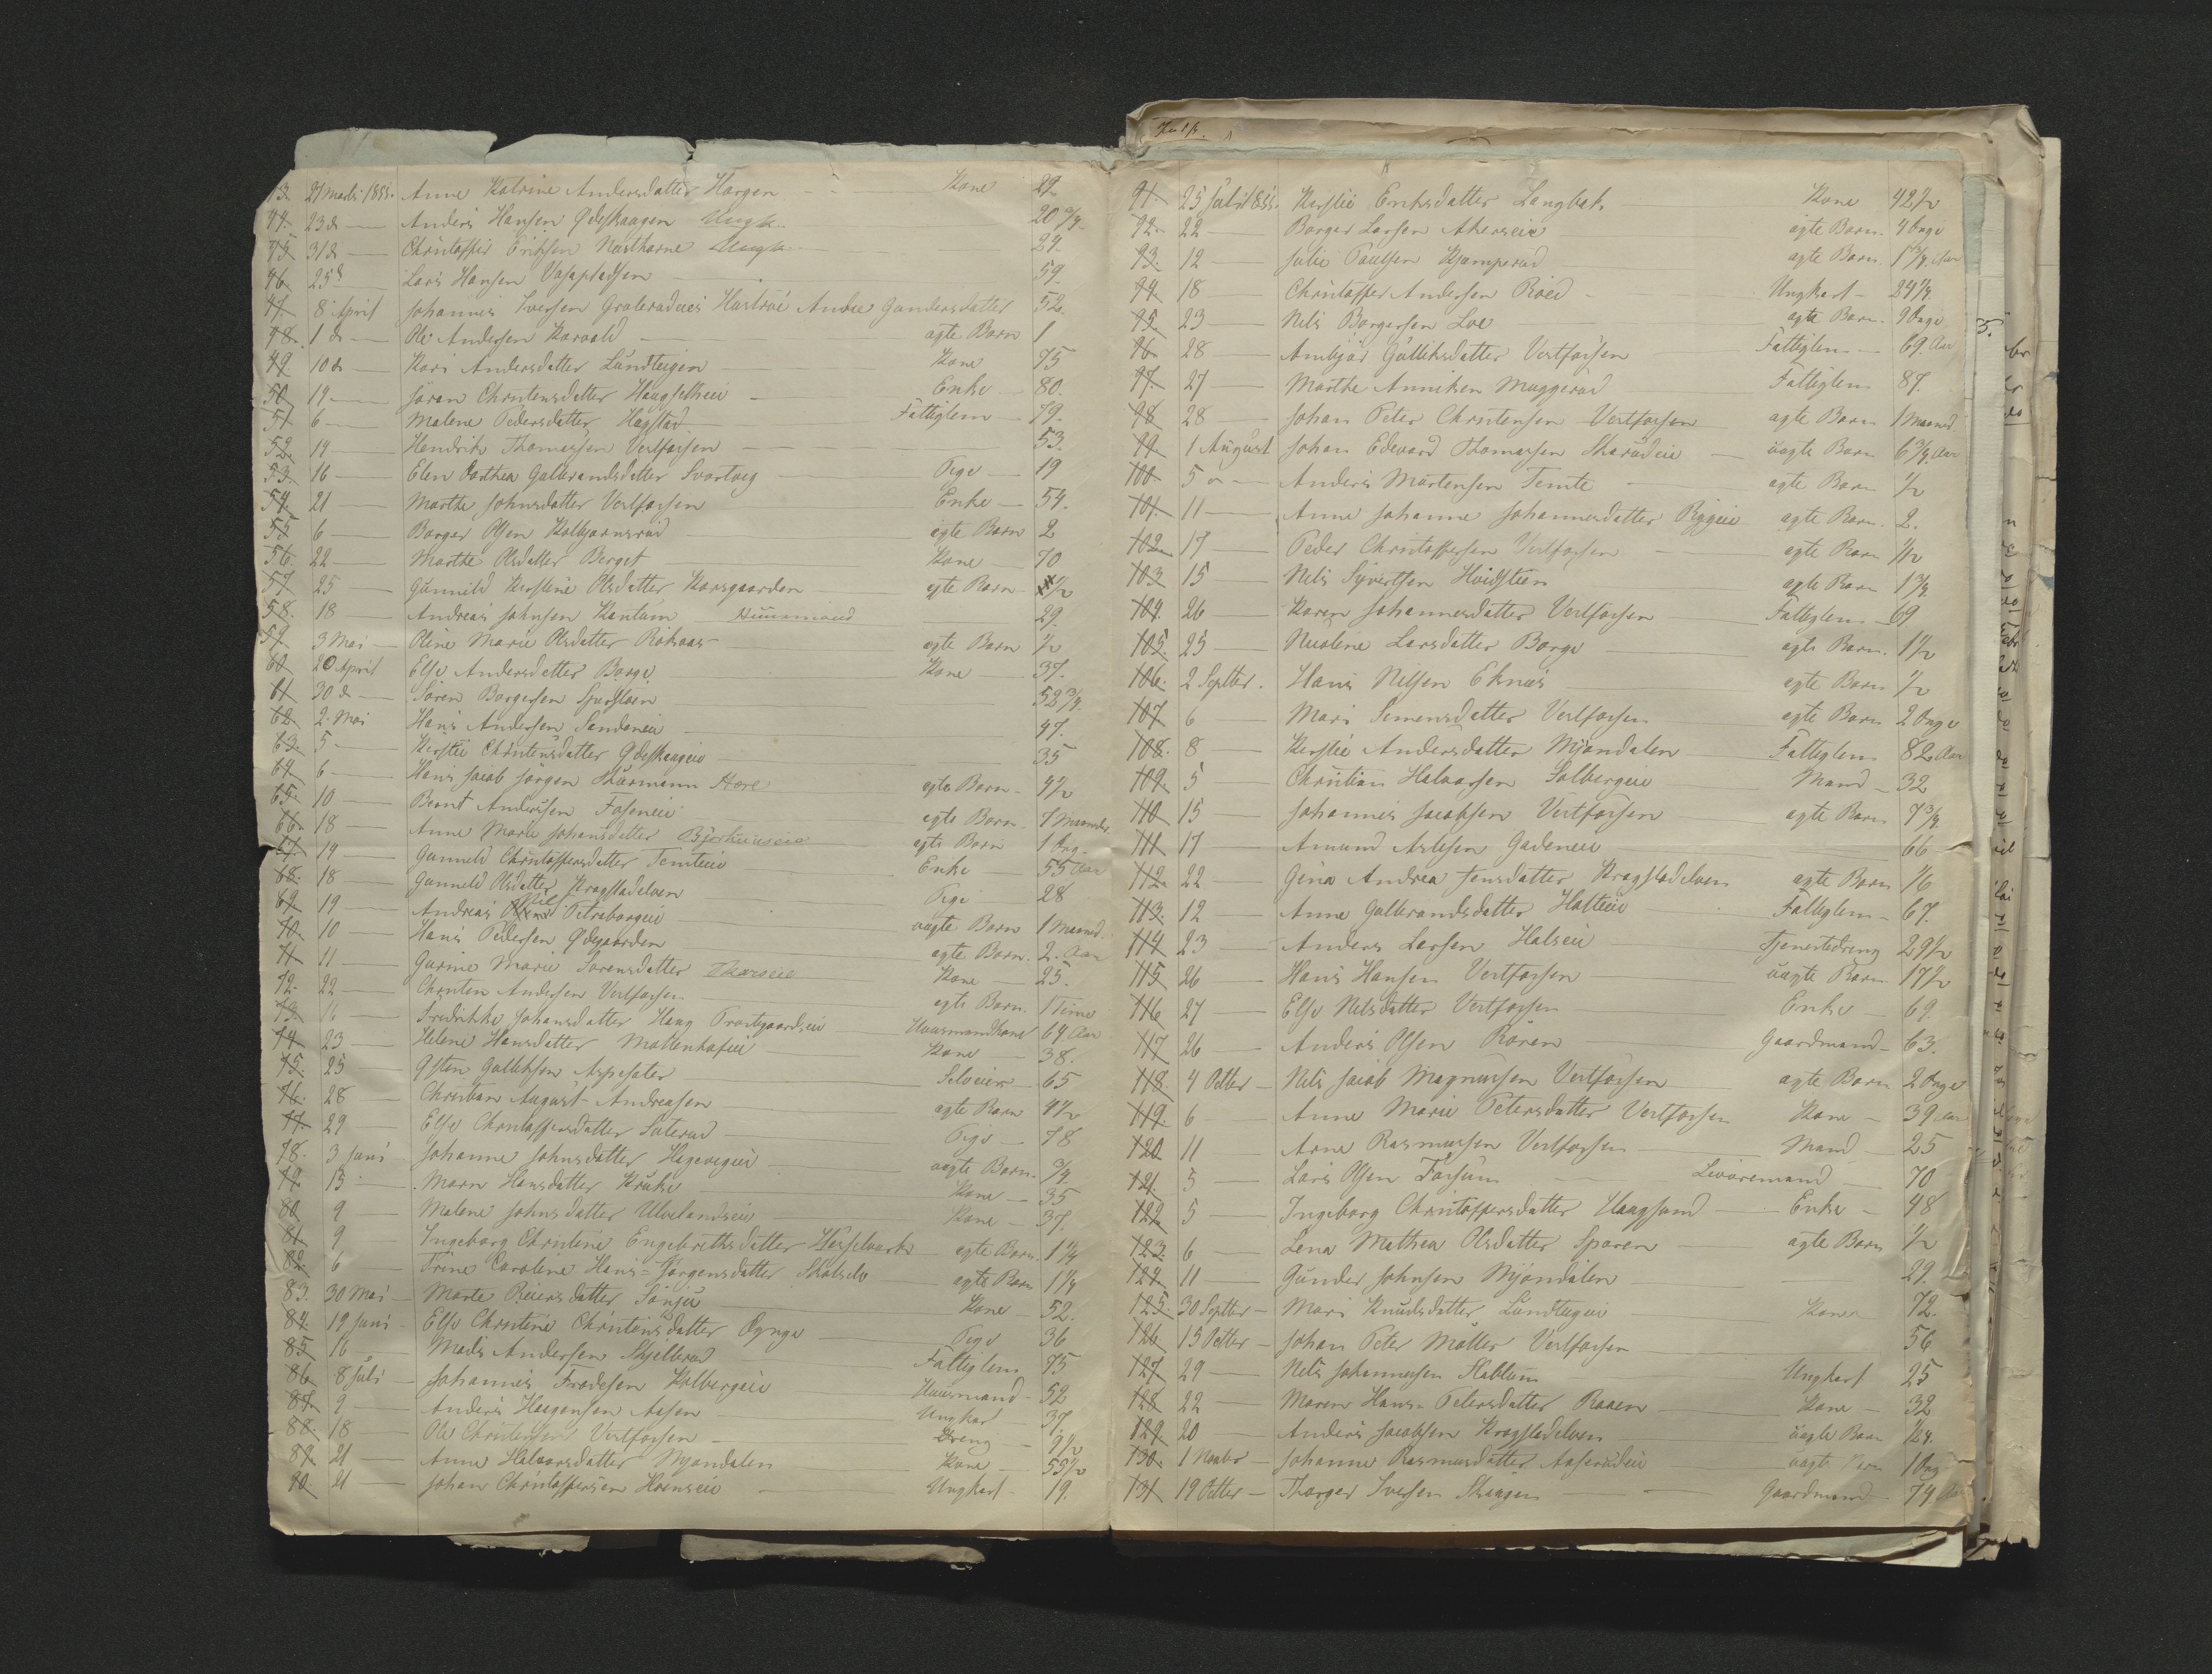 43. 21 Marts 1855. Anne Katrine Andersdatter Horgen Kone 29.
44. 23 d Anders Hansen Ødeskougen Ungk. 20 3/4
45. 31 d Christoffer Eriksen Ungk. 24.
46. 25 d Lars Hansen 59
47. 8 April Johannes Iversen Hustrue Andrea Gundersdatter 52.
48. 1 d Ole Andersen Korvald ægte Barn 1
49. 10 d Kari Andersdatter Lundteigen Kone 75
50. 19 Søren Christensdatter Enke 80.
51. 6 Malene Pedersdatter Hagstad Fattiglem 79.
52. 19 Hendrik Thomassen Vestfossen 53.
53. 16 Elen Dorthea Gulbrandsdatter Svartveg Pige 19
54. 21 Marthe Johnsdatter Vestfossen Enke 54.
55 6 Borger Olsen Kolbjørnsrud ægte Barn 2
56. 22 Marthe Olsdatter Berget Kone 70
57 25 Gunnild Kirstine Olsdatter Korsgaarden ægte Barn 1/2
58. 18 Andreas Johnsen Huusmand 29.
59. 3 Mai Oline Marie Olsdatter ægte Barn 1/2
60. 20 April Else Andersdatter Borge Kone 37.
61 30 d Søren Borgersen 52 3/4
62. 2. Mai Hans Andersen Sandeneie 47.
63. 5 Kirstie Christensdatter Ødeskougeie 35
64 6 Hans Jacob Jørgen Thurmann Hore ægte Barn 4 1/2
65. 10 Bernt Anderssen ægte Barn 7 Maaneder.
66. 18 Anne Marie Johansdatter ægte Barn 1 Dag.
67. 19 Gunnild Christoffersdatter Temteeie Enke 55 Aar
68. 18 Gunnild Olsdatter Krogstadelven Pige 28
69. 19 Andreas uægte Barn 1 Maaned.
70. 10 Hans Pedersen Ødegaarden ægte Barn. 2. Aar
71 11 Gurine Marie Sørensdatter Kone 25.
72. 22 Christen Andersen Vestfossen ægte Barn. 1 Time
73. 16 Fredrikke Johansdatter Haug Prestgaardseie Huusmandkone 64 Aar
74. 23 Helene Hansdatter Kone 38.
75. 25 Østen Gulliksen Selveier 65
76. 28 Christian August Andreasen ægte Barn 4 1/2
77. 29 Else Christoffersdatter Sæterud Pige 78
78. 3 Juni Johanne Johnsdatter uægte Barn. 3/4
79 15 Maren Hansdatter Kruke Kone 35
80. 9 Malene Johnsdatter Ulvelandseie Kone 37.
81. 9 Ingeborg Christine Engebrethsdatter Hasselverk ægte Barn. 1 1/4
82. 6 Trine Caroline Hans-Jørgensdatter Skotselv ægte Barn 1 1/4
83. 30 Mai Marte Reiersdatter Kone 52.
84. 19 Juni Else Christine Christensdatter Pige 36
85 16 Mads Andersen Skjelbred Fattiglem 75
86. 8 Juli Johannes Frodesen Solbergeie Huusmand 52
87. 9 Anders Aasen Ungkar 37.
88. 18 Ole Christensen Vestfossen Dreng 9 1/2
89. 21 Anne Halvorsdatter Mjøndalen Kone 55 1/2
90. 21 Johan Christoffersen Hoenseie Ungkarl 19.
91. 25 Juli 1855. Kirstie Eriksdatter Langbak Kone 42 1/2
92. 22 Borger Larsen ægte Barn. 4 Dage
93. 12 Julie Paulsen Kjamperud ægte Barn. 1 3/4 Aar
94. 18 Christoffer Andersen Roed Ungkarl 24 1/4
95. 23 Nils Borgersen Loe ægte Barn. 9 Dage
96. 28 Ambjør Gulliksdatter Vestfossen Fattiglem 69. Aar
97. 27 Marthe Anniken Muggerud Fattiglem 87.
98 28 Johan Peter Christensen Vestfossen ægte Barn 1 Maaned.
99. 1 August Johan Edevard Thomassen Skarudeie uægte Barn 6 3/4 Aar
100. 5 Anders Mortensen Temte ægte Barn 1/2
101. 11 Anne Johanne Johannesdatter ægte Barn. 2.
102. 17 Peder Christoffersen Vestfossen ægte Barn 1/12
103. 15 Nils Syvertsen Hvidsteen ægte Barn 1 3/4
104. 26 Karen Johannesdatter Vestfossen Fattiglem 69
105. 25 Nicoline Larsdatter Borge ægte Barn. 1 1/2
106. 2 Septber. Hans Nilsen Eknes ægte Barn 1/2
107. 6 Mari Simensdatter Vestfossen ægte Barn 2 Dage
108. 8 Kirstie Andersdatter Mjøndalen Fattiglem 82 Aar
109. 5 Christian Halvorsen Solbergeie Mand 32
110. 15 Johannes Jacobsen Vestfossen ægte Barn 7 3/4
111 17 Amund Aslesen 66
112. 22 Gina Andrea Jensdatter Krogstadelven ægte Barn 1/6
113. 12 Anne Gulbrandsdatter Fattiglem 67.
114 23 Anders Larsen Tjenestedreng 29 1/2
115 26 Hans Hansen Vestfossen uægte Barn. 17 1/2
116 27 Else Nilsdatter Vestfossen Enke 69.
117 26 Anders Olsen Røren Gaardmand 63.
118. 4 Octber Nils Jacob Magnussen Vestfossen ægte Barn 2 Dage
119. 6 Anne Marie Petersdatter Vestfossen Kone 39 Aar
120 11 Arne Rasmussen Vestfossen Mand 25
121. 5 Lars Olsen Fossum 70
122. 5 Ingeborg Christoffersdatter Haugsund Enke 48
123. 6 Lena Mathea Olsdatter Sporen ægte Barn 1/2
124. 11 Gunder Johnsen Mjøndalen 29.
125. 30 Septber Mari Knudsdatter Lundteigeie Kone 72.
126. 13 Octber Johan Peter Møller Vestfossen 56
127. 29 Nils Johannesen Stablum Ungkarl 25
128 22 Maren Hans-Petersdatter Raaen Kone 32
129. 20 Anders Jacobsen Krogstadelven uægte Barn 1/24.
130. 1 Novber Johanne Rasmusdatter uægte Barn 1 Dag
131 19 Octber Thorger Iversen Skougen Gaardmand 74 Aar